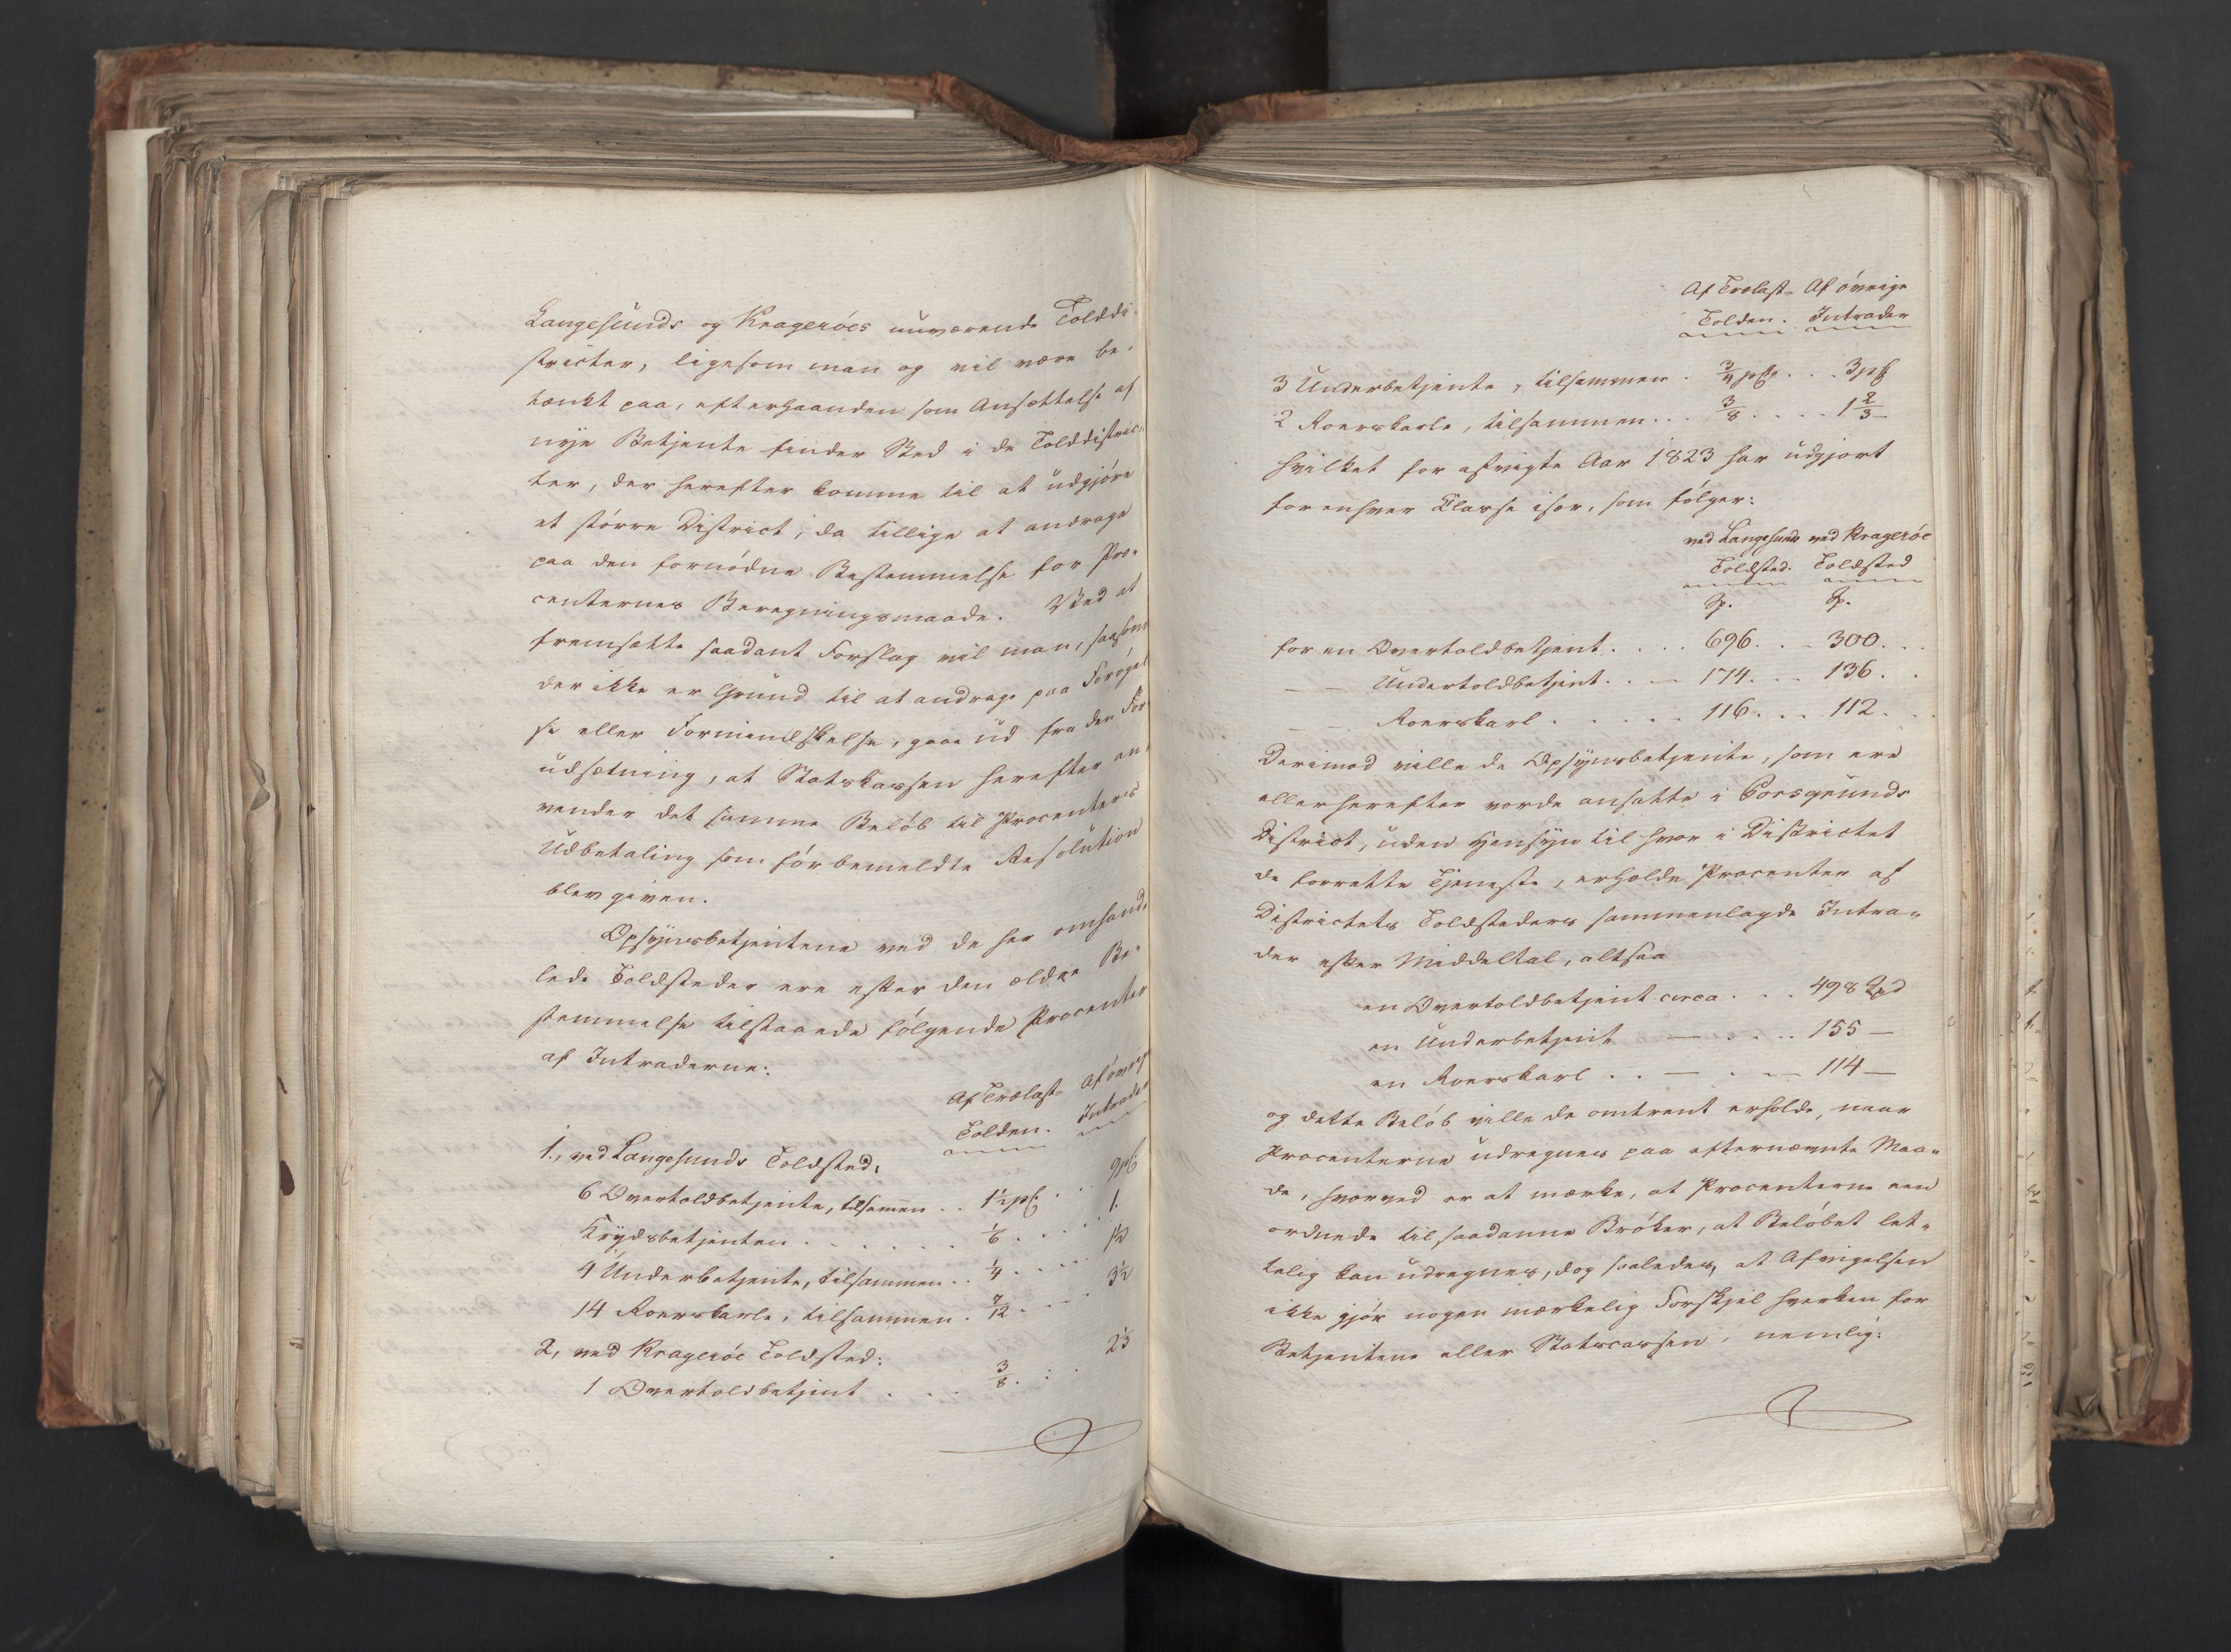 Langesunds og Kragerøes nuværende Tolddi-
stricter, ligesom man og vil være be-
tænkt paa, efterhaanden som Ansættelse af
nye Betjente finder Sted i de Tolddistric-
ter, der herefter komme til at udgjøre
et større District, da tillige at andrage
paa den fornødne Bestemmelse for Pro-
centernes Beregningsmaade. Ved at
fremsætte saadant Forslag vil man, saasom
der ikke er Grund til at andrage paa Forøgel
se eller Formindskelse, gaae ud fra den For
udsætning, at Statskassen herefter an-
vender det samme Beløb til Procenters
Udbetaling som før bemeldte Resolution
blev given.
Opsynsbetjentene ved de her omhand-
lede Toldsteder ere efter den ældre Be-
stemmelse tilstaaede følgende Procenter
af Intraderne:
Af Trælast- Af øvrige
Tolden. Intrader
1., ved Langesunds Toldsted:
6 Overtoldbetjente, tilsammen . . 1½ pCt . . . 9 pCt
Krydsbetjenten . . . . . . 1/6 . . . . 1.
4 Underbetjente, tilsammen . . 1/4 . . . . 1½
14 Roerskarle, tilsammen . 7/12 . . . . 3½
2, ved Kragerøe Toldsted:
1 Overtoldbetjent . . . . 3/8 . . . 2⅓
Af Trælast- Af øvrige
Tolden. Intrader
3 Underbetjente, tilsammen . 3/4 pCt . . . 3 pCt
2 Roerskarle, tilsammen . . . 3/8 . . . . 1 2/3
hvilket for afvigte Aar 1823 har udgjort
for enhver Classe især, som følger:
ved Langesunds ved Kragerøe
Toldsted. Toldsted
Sp. Sp.
for en Overtoldbetjent . . . . 696 . . . 300 . . .
— — Undertoldbetjent . . . 174 . . . 136 . .
— Roerskarl . . . . . 116 . . . 112 . .
Derimod ville de Opsynsbetjente, som ere
eller herefter vorde ansatte i Porsgrunds
District, uden Hensyn til hvor i Districtet
de forrette Tjeneste, erholde Procenter af
Districtets Toldsteders sammenlagde Intra-
der efter Middeltal, altsaa
en Overtoldbetjent circa . . . 498 Spd
en Underbetjent — . . . . 155 —
en Roerskarl . . — . . . 114 —
og dette Beløb ville de omtrent erholde, naar
Procenterne udregnes paa efternævnte Maa-
de, hvorved er at mærke, at Procenterne ere
ordnede til saadanne Brøker, at Beløbet let-
telig kan udregnes, dog saaledes, at Afvigelsen
ikke gjør nogen mærkelig Forskjel hverken for
Betjentene eller Statscassen, nemlig: